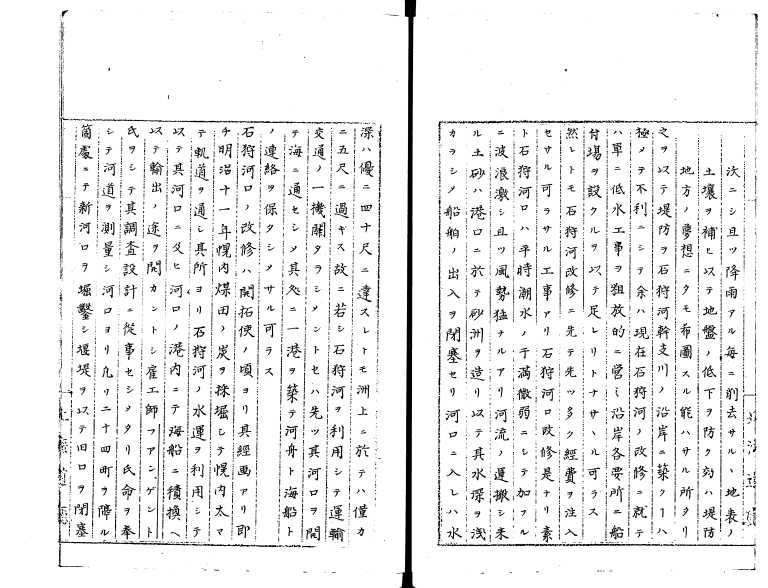 次ニシ且ツ降雨アル毎ニ削去サルヽ地表ノ
土壌ヲ補ヒ以テ地盤ノ低下ヲ防ク匆ハ堤防
地方ノ夢想ニタモ布圖スル能ハサル所タリ
之ヲ以テ堤防ヲ石狩河幹支川ノ沿岸ニ築クハ
極メテ不利ニシテ余ハ現在石狩河ノ改修ニ就テ
ハ單ニ低水工事ヲ粗放的ニ營ミ沿岸各要所ニ船
付場ヲ設クルヲ以テ足レリトナサヽル可ラス
然レトモ石狩河改修ニ先テ先ツ多ク經費ヲ注入
セサル可ラサル工事アリ石狩河口改修是ナリ素
ト石狩河口ハ平時潮水ノ干満微弱ニシテ加フル
ニ波浪激シ且ツ風勢猛ナルアリ河流ノ運搬シ来
ル土砂ハ港口ニ於テ砂洲ヲ造リ以テ其水深ヲ浅
カラシメ船舶ノ出入ヲ閉塞セリ河口ニ入レハ水
深ハ優ニ四十尺ニ達スレトモ洲上ニ於テハ僅カ
ニ五尺ニ過ギス故ニ若シ石狩河ヲ利用シテ運輸
交通ノ一機關タラシメントセハ先ツ其河口ヲ開
テ海ニ通セシメ其処ニ一港ヲ築テ河舟ト海船ト
ノ連絡ヲ保タシメサル可ラス
石狩河口ノ改修ハ開拓使ノ頃ヨリ其經画アリ即
チ明治十一年幌内煤田ノ炭ヲ採堀シテ幌内太マ
テ軌道ヲ通シ其所ヨリ石狩河ノ水運ヲ利用シテ
以テ其河口ニ及ヒ河口ノ港内ニテ海船ニ積換ヘ
以テ輸出ノ途ヲ開カントシ雇工師フアンゲント
氏ヲシテ其調査設計ニ從事セシメタリ氏命ヲ奉
シテ河道ヲ測量シ河口ヨリ凡リ二十四町ヲ隔ル
箇處ニテ新河口ヲ堀鑿シ堰堤ヲ以テ旧口ヲ閉塞
北海道廳